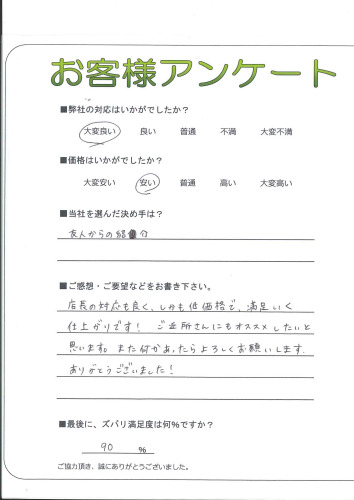 お客様アンケート
■弊社の対応はいかがでしたか?
大変良い 良い 普通 不満 大変不満
■価格はいかがでしたか?
大変安い 安い 普通 高い 大変高い
■当社を選んだ決め手は?
友人からの紹介
■ご感想・ご要望などをお書き下さい。
店長の対応も良く、しかも低価格で、満足いく
仕上がりです! ご近所さんにもオススメしたいと
思います。また何かあったらよろしくお願いします。
ありがとうございました!
■最後に、ズバリ満足度は何%ですか?
90 %
ご協力頂き、誠にありがとうございました。